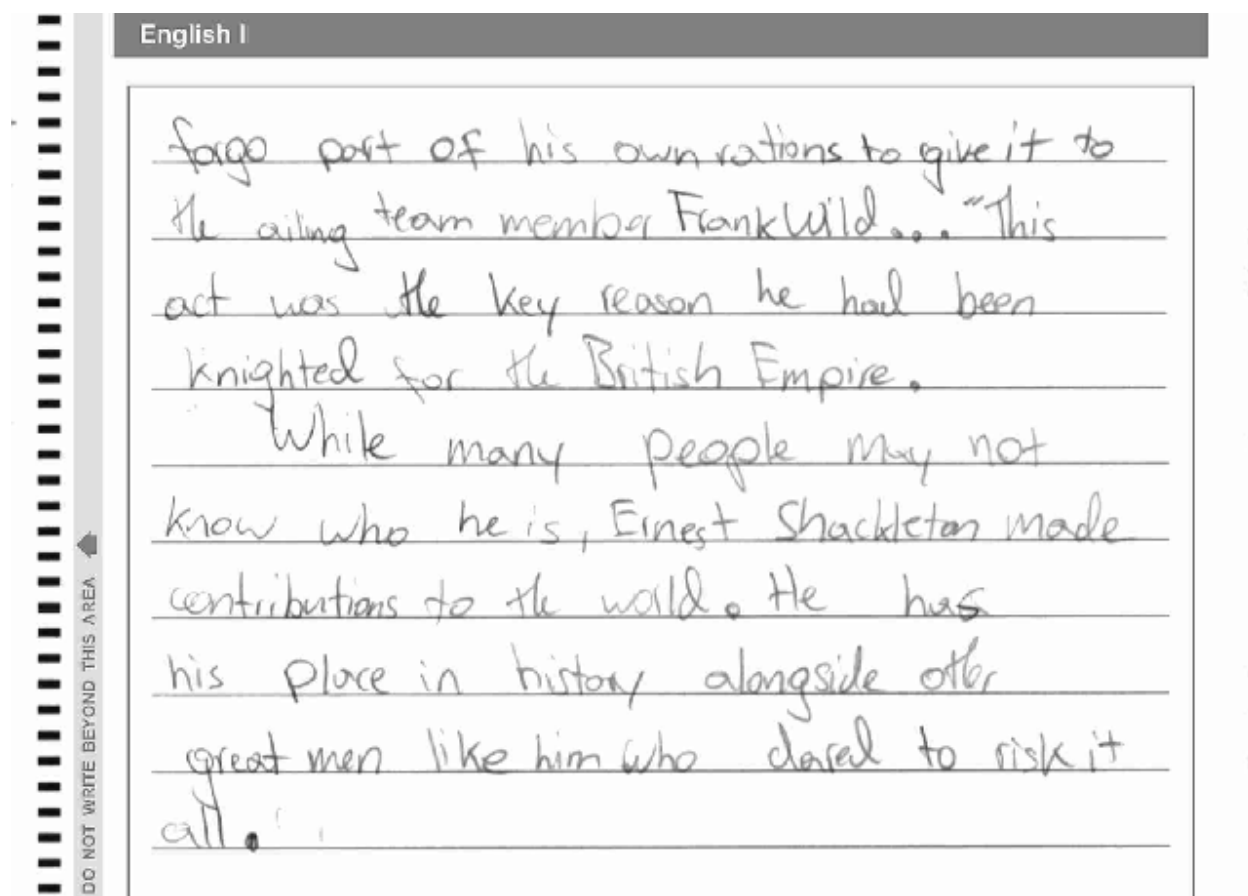 English I
forgo part of his own rations to give it to
the ailing team member Frank Wild... "This
act was the key reason he had been
knighted for the British Empire.
While many people may not
know who he is, Ernest Shackleton made
contributions to the world. He has
his place in history alongside other
great men like him who dared to risk it
all.
DO NOT WRITE BEYOND THIS AREA